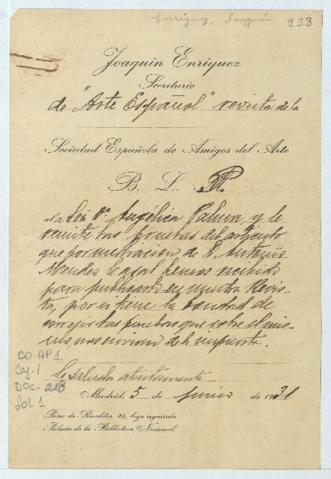 Enríquez, Joaquín
233
Joaquin Enriquez
Secretario
de "Arte Español" revista de la
Sociedad Española de Amigos del Arte
B. L. M.
a la Srta Dª Angélica Palma, y le
remite las pruebas del artículo
que por mediación de D. Antonio
Mendes Casal hemos recibido
para publicarlo en nuestra Revis-
ta, por si tiene la bondad de
corregir las pruebas que sobre el mis-
Le saluda atentamente
Madrid, 5 de Junio de 1931
Paseo de Recoletos, 20, bajo izquierda
Palacio de la Biblioteca Nacional.
CO-AP1
Caj. 1
Doc. 218
fol. 1